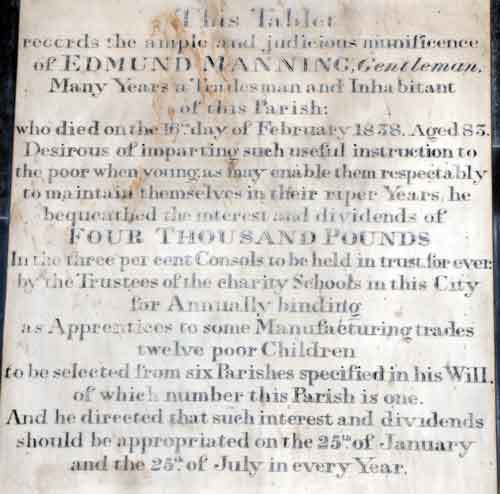 This Tablet
records the ample and judicious munificence
of EDMUND MANNING, Gentleman,
Many Years a Tradesman and Inhabitant
of this Parish:
who died on the 16th day of February 1838. Aged 83.
Desirous of imparting such useful instruction to
the poor when young, as may enable them respectably
to maintain themselves in their riper Years, he
bequeathed the interest and dividends of
FOUR THOUSAND POUNDS
In the three per cent Consols to be held in trust for ever:
by the Trustees of the charity Schools in this City
for Annually binding
as Apprentices to some Manufacturing trades
twelve poor Children
to be selected from six Parishes specified in his Will.
of which number this Parish is one.
And he directed that such interest and dividends
should be appropriated on the 25th of January
and the 25th of July in every Year.